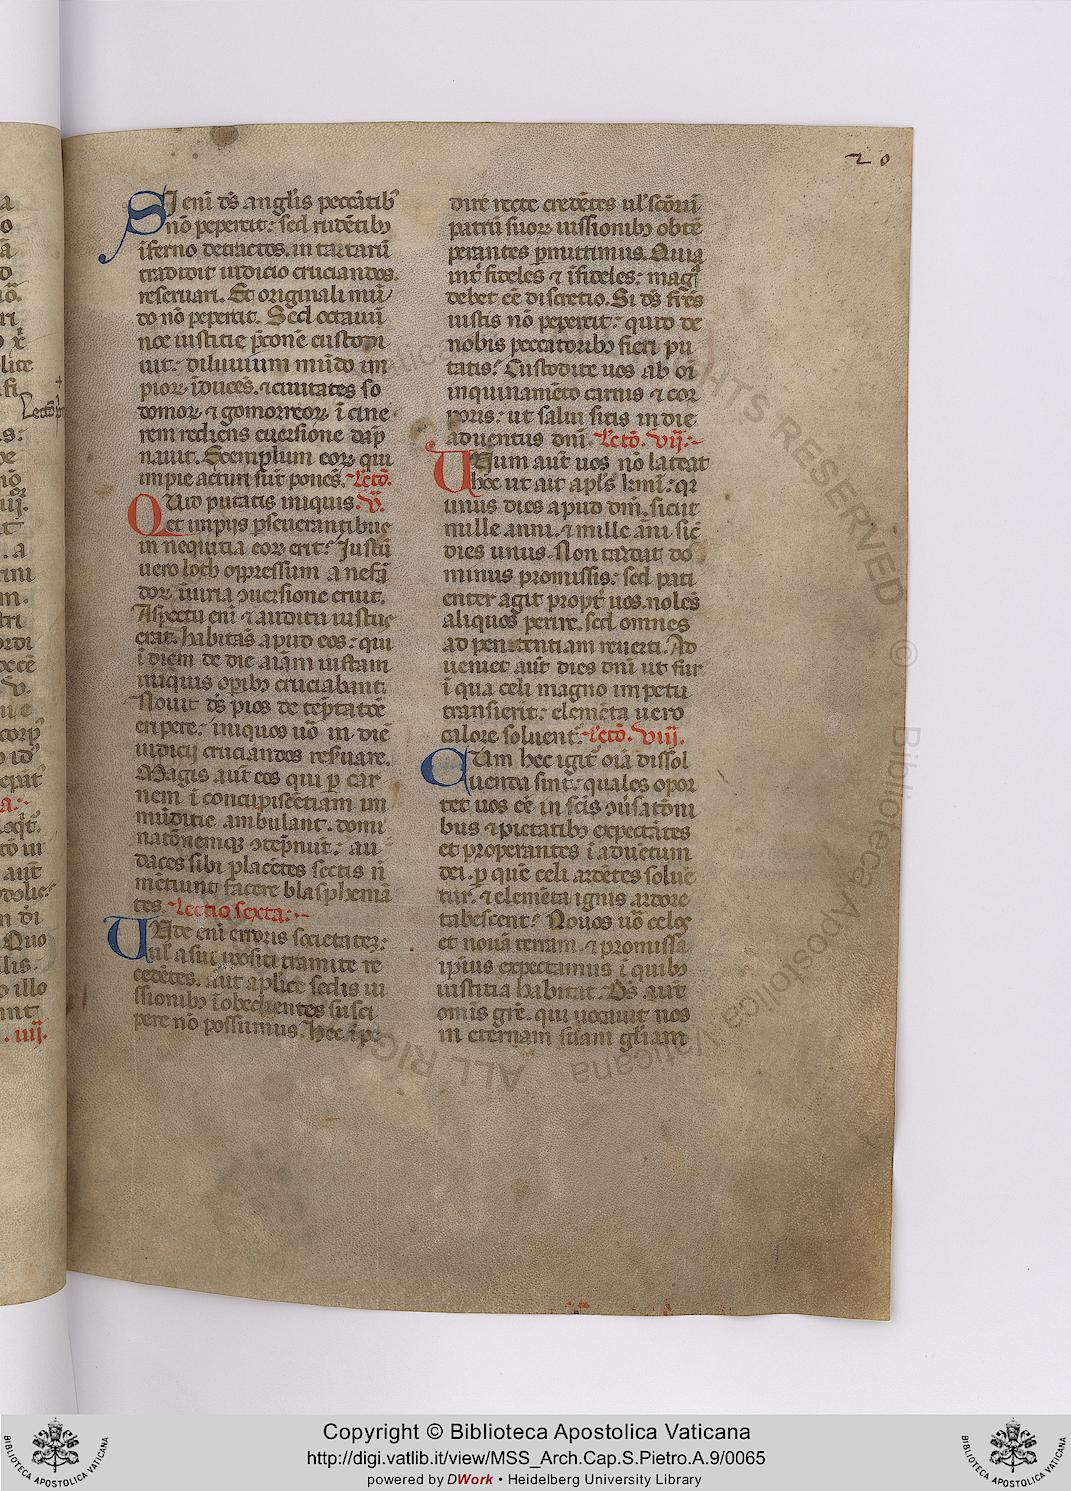 20
SI eni ds anglis peccatib
no pepercit: sed rudetib
iferno detractos. in tartaru
tradidit iudicio cruciandos.
reseruari. Et originali mu
do no pepercit. Sed octauu
noe iustitie pcone custodi
uit: diluuium mudo im
pior iduces. ⁊ ciuitates so
domor ⁊ gomorreor i cine
rem redigens euersione dap
nauit. Exemplum eor qui
impie acturi sut pones. Lecto.
QUid putatis iniquis. v.
et impijs pseuerantibus
in nequitia eor erit? Iustu
uero loth oppressum a nefa
dor iniuria ↄuersione eruit.
Aspectu eni ⁊ auditu iustus
erat. habitas apud eos: qui
i diem de die aiam iustam
iniquis opibus cruciabant.
Nouit ds pios de teptatoe
eripere: iniquos uo in die
iudicij cruciandos resuare.
Magis aut eos qui p car
nem i concupiscetiam im
muditie ambulant. domi
natonemq ↄtepnut: au
daces sibi placetes sectis n
metiunt facere blasphema
tes. Lectio sexta:
UNde eni erroris societatez:
uel a sui ppositi tramite re
cedetes. aut aplice sedis iu
ssionibus iobedientes susci
pere no possumus. Hec ipe
dire recte credetes ul scoru
patru suor iussionibus obte
perantes pmittimus. Quia
int fideles ⁊ ifideles: mag
debet ee discretio. Si ds fres
iustis no pepercit: quid de
nobis peccatoribus fieri pu
tatis? Custodite uos ab oi
inquinameto carnis ⁊ cor
poris: ut salui sitis in die
aduentus dni. Lecto. vij:
UNum aut uos no lateat
hec ut ait apls kmi: qr
unus dies apud dm. sicut
mille anni. ⁊ mille ani sic
dies unus. Non tardat do
minus promissis: sed pati
enter agit propt uos. noles
aliquos perire. sed omnes
ad penitentiam reuerti. Ad
ueniet aut dies dni ut fur
i qua celi magno impetu
transierit: elemeta uero
calore soluent. Lecto. viij.
CUm hec igit oia dissol
uenda sint: quales opor
tet uos ee in scis ↄuersatoni
bus ⁊ pietatibus expectates
et properantes i aduetum
dei. p que celi ardetes solue
tur: ⁊ elemeta ignis ardore
tabescent? Nouos uo celos
et noua terram. ⁊ promissa
ipsius expectamus i quibus
iustitia habitat. Ds aut
omis gre. qui uocauit nos
in eternam suam gliam
Copyright © Biblioteca Apostolica Vaticana
http://digi.vatlib.it/view/MSS_Arch.Cap.S.Pietro.A.9/0065
powered by DWork • Heidelberg University Library